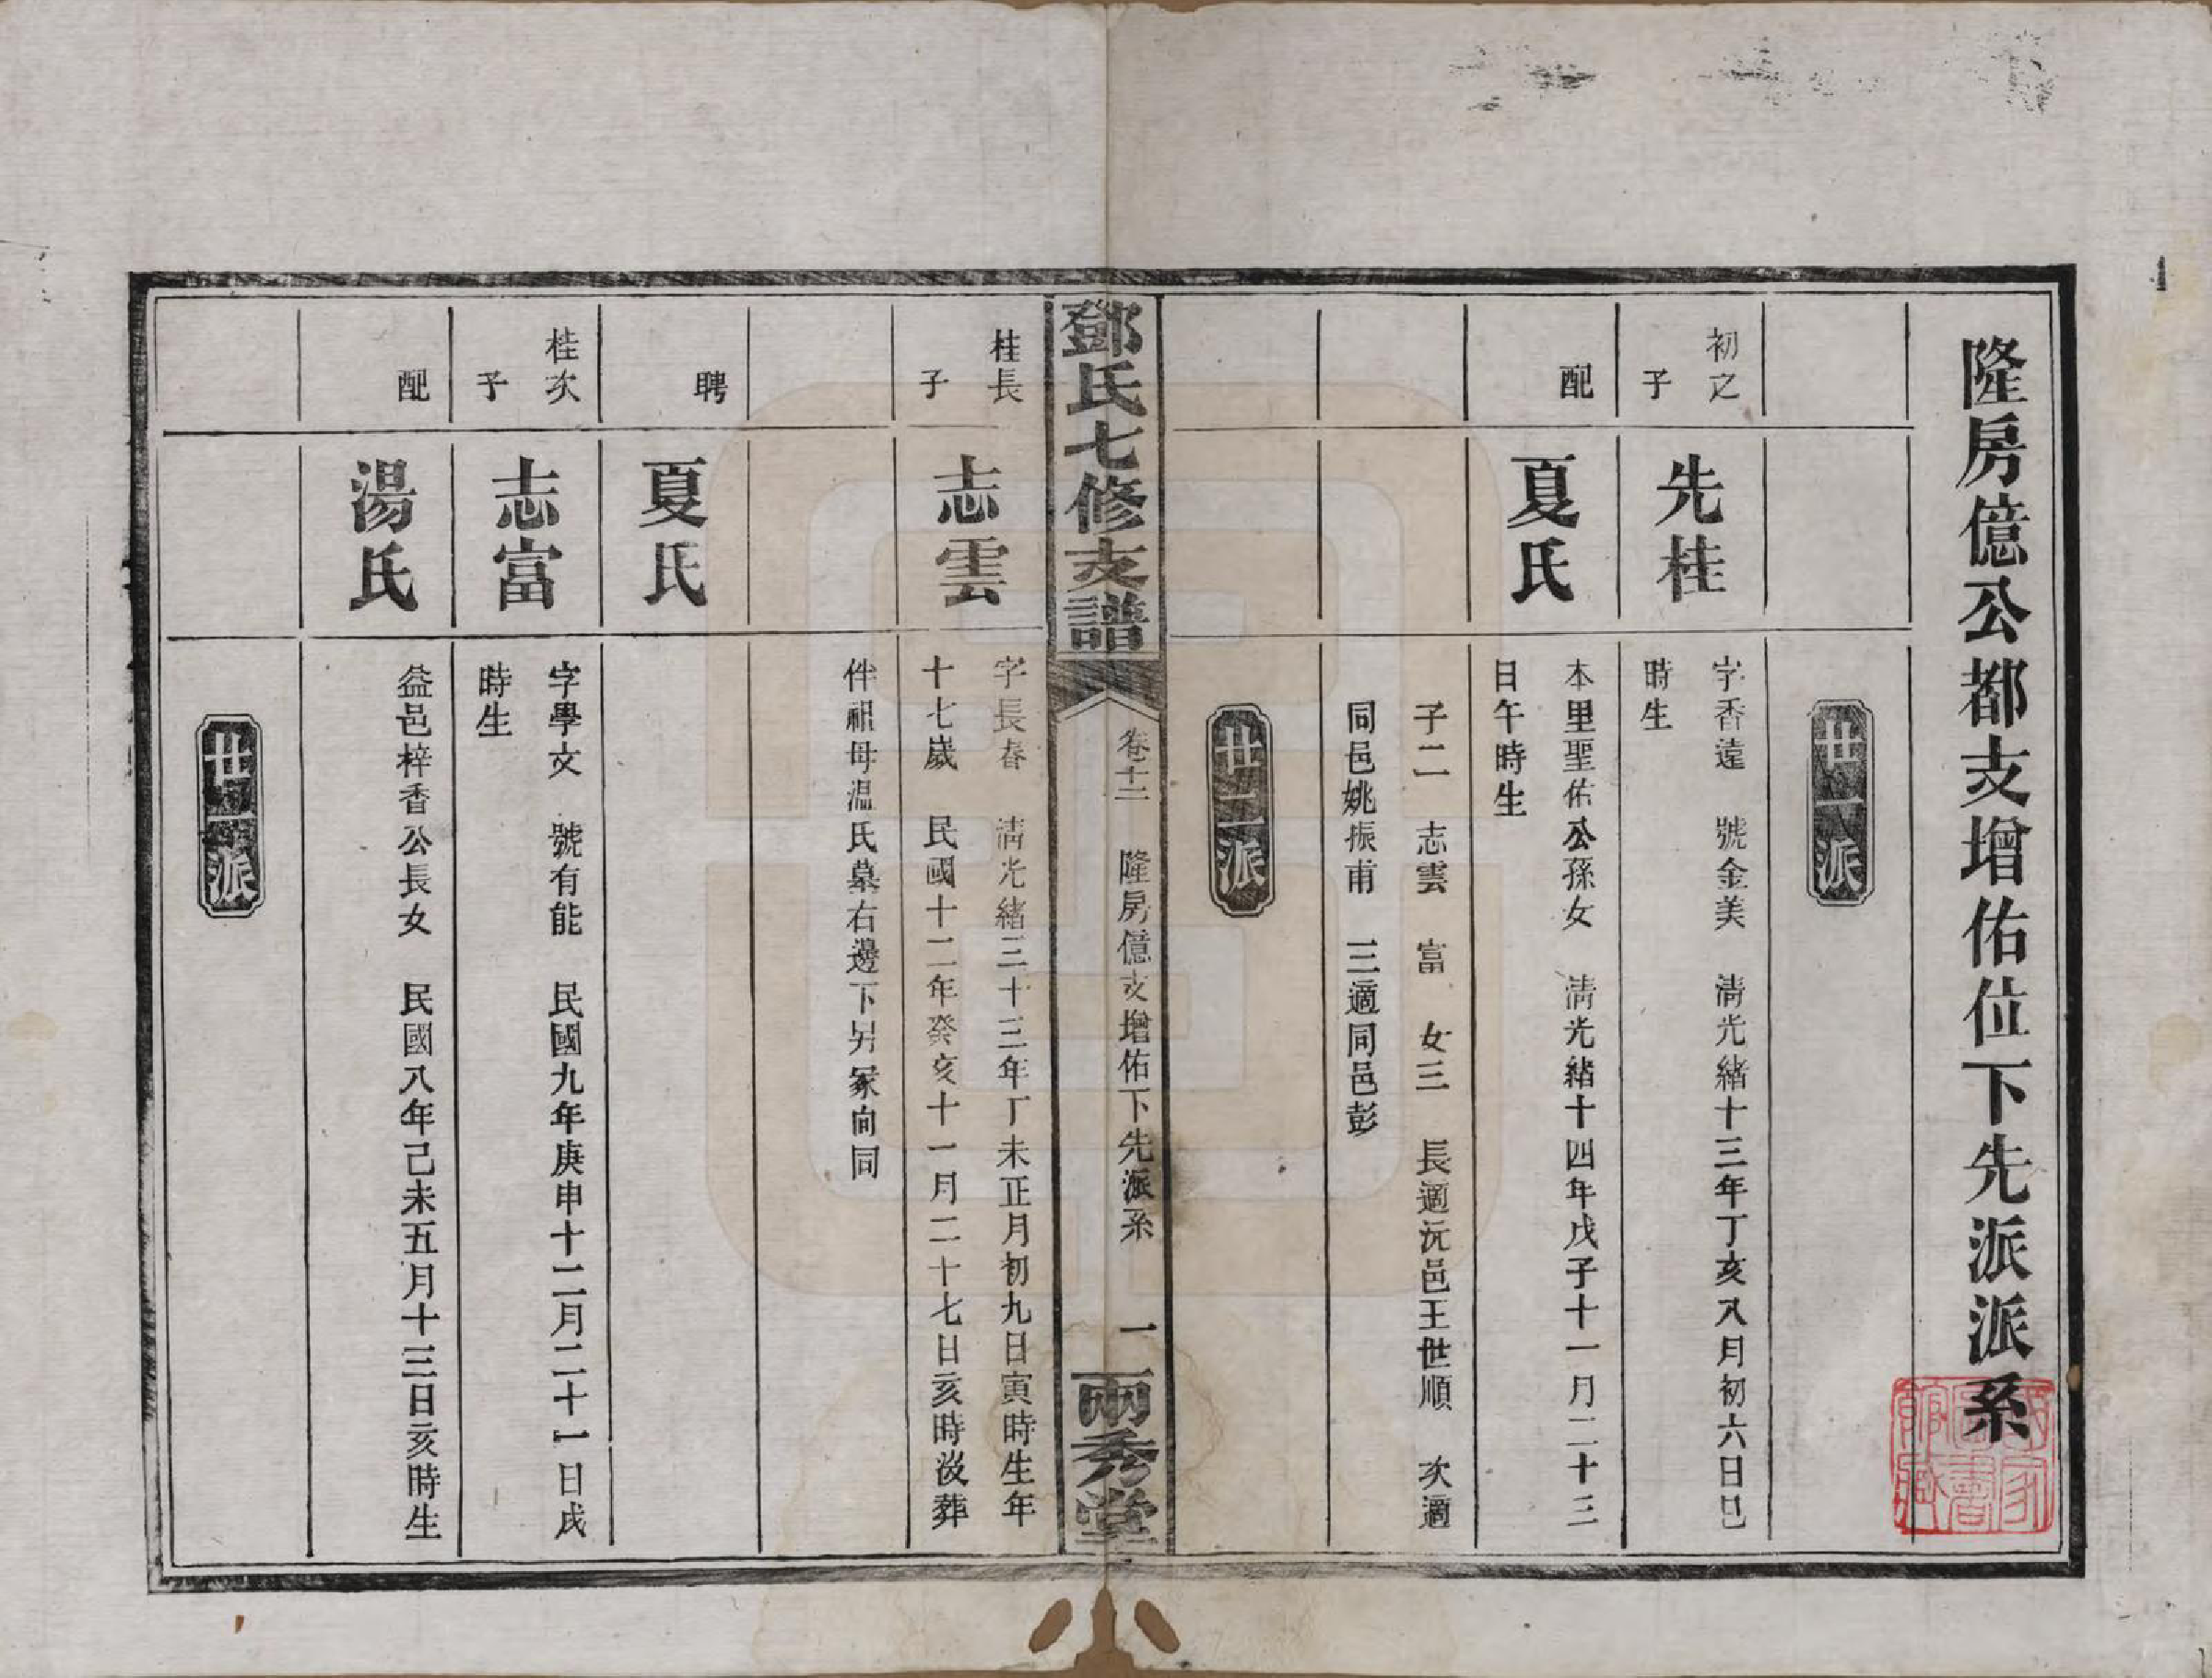 隆房億公都支增佑位下先派派系
廿一派
初之
子
先桂
字香遠　號金美　清光緒十三年丁亥八月初六日巳
時生
配
夏氏
本里聖佑公孫女　清光緒十四年戊子十一月二十三
日午時生
子二　志雲　富　女三　長適沅邑王世順　次適
同邑姚振甫　三適同邑彭
廿二派
鄧氏七修支譜
卷十二　隆房億支增佑下先派系　一
兩秀堂
桂長
子
志雲
字長春　清光緒三十三年丁未正月初九日寅時生年
十七歲　民國十二年癸亥十一月二十七日亥時歿葬
伴祖母温氏墓右邊下另冢向同
聘
夏氏
桂次
子
志富
字學文　號有能　民國九年庚申十二月二十一日戌
時生
配
湯氏
益邑梓香公長女　民國八年己未五月十三日亥時生
廿三派
國家圖書館藏